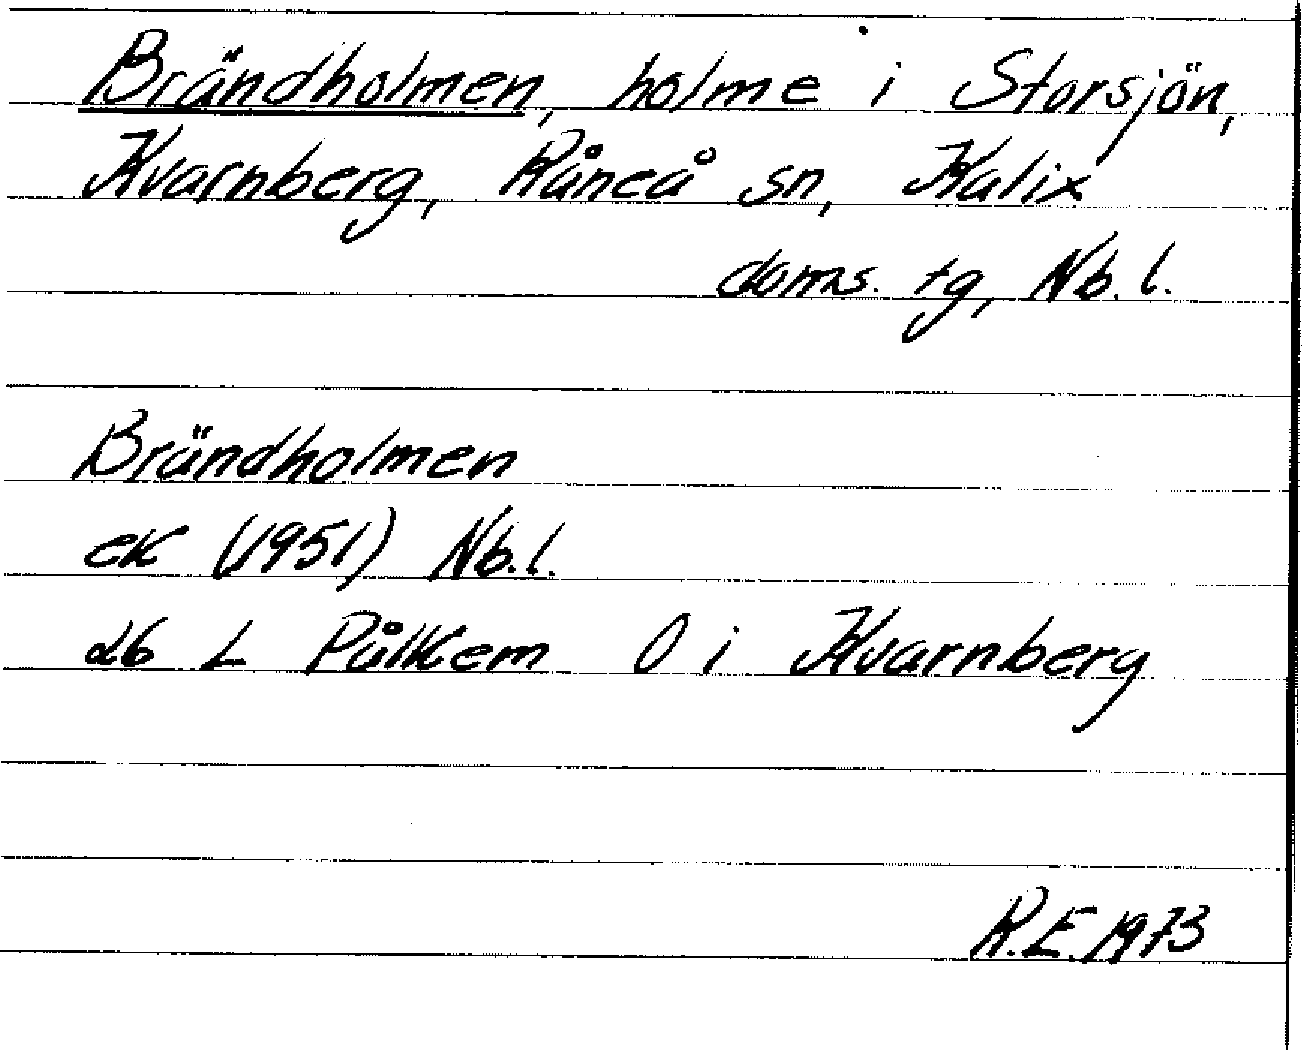 Brändholmen, holme i Storsjön,
Kvarnberg, Råneå sn, Kalix
doms. tg, Nb. l.
Brändholmen
ek (1951) Nb. l.
d6 L Pålkem O i Kvarnberg
R.E. 1973